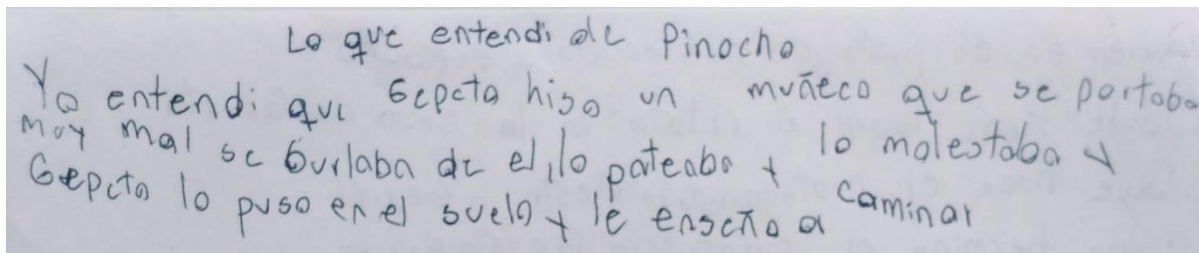 Lo que entendi de Pinocho
Yo entendi que Gepeto hiso un muñeco que se portaba
muy mal se burlaba de el, lo pateaba y lo molestaba y
Gepeto lo puso en el suelo y le enseño a caminar